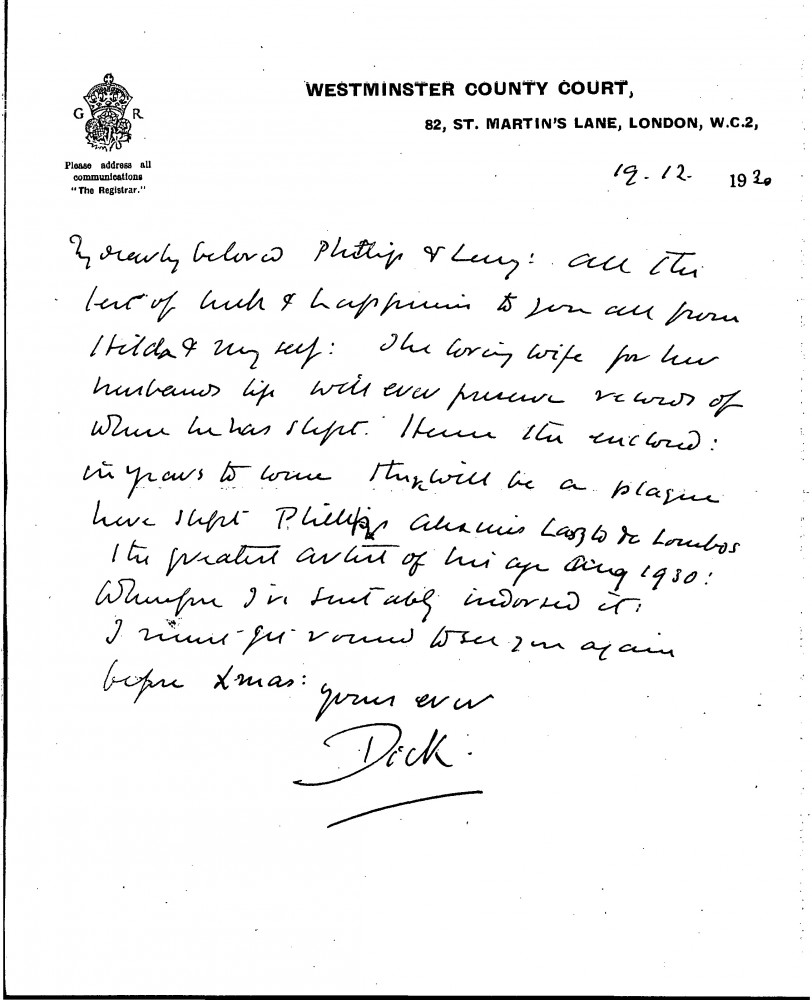 WESTMINSTER COUNTY COURT,
82, ST. MARTIN'S LANE, LONDON, W.C.2,
G R
Please address all
communications
"The Registrar."
19.12. 1930
My dearly beloved Phillip & Lucy: all the
best of luck & happiness to you all from
Hilda & myself: The loving wife for her
husbands life will ever preserve records of
where he has slept. Hence the enclosed:
in years to come there will be a plaque
here slept Phillip Alexius Laszlo de Lombos
the greatest artist of his age Aug 1930:
Wherefore I've suitably indorsed it:
I must get round to see you again
before Xmas: yours ever
Dick.